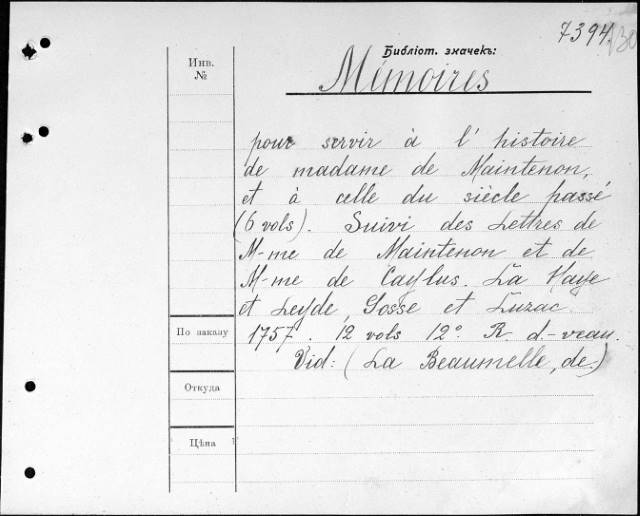 7394
Библіот. значекъ:
Инв.
№
Mémoires
pour servir à l' histoire
de madame de Maintenon,
et à celle du siècle passé
(6 vols). Suivi des Lettres de
M-me de Maintenon et de
M-me de Caylus. La Haye
et Leyde, Gosse et Luzac.
По заказу
1757. 12 vols 12°. R. d.-veau.
Vid: (La Beaumelle, de.)
Откуда
Цѣна